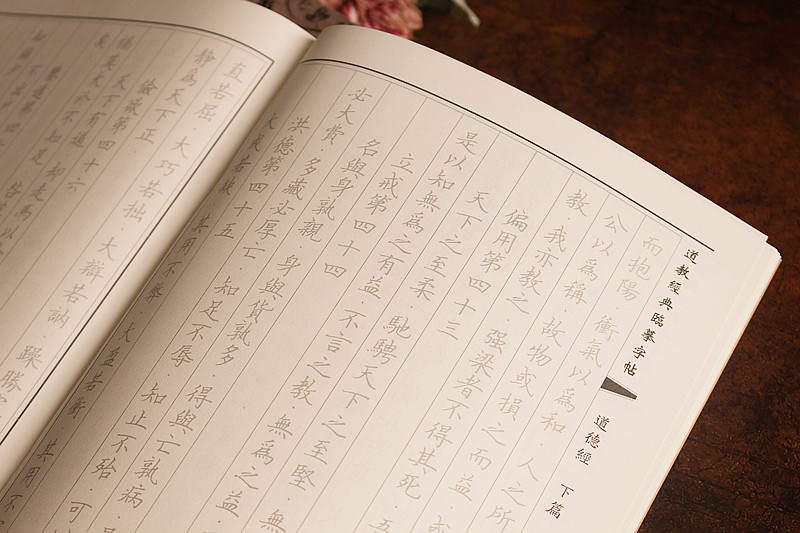 道教經典臨摹字帖
道德經 下篇
而抱陽．衝氣以為和．人之所
公以為稱．故物或損之而益．或
教．我亦教之．強梁者不得其死．吾
偏用第四十三
天下之至柔．馳騁天下之至堅．無
是以知無為之有益．不言之教．無為之益．
立戒第四十四
名與身孰親 身與貨孰多 得與亡孰病．
必大費．多藏必厚亡．知足不辱．知止不殆．可
洪德第四十五
大成若缺 其用不弊 大盈若沖．其用不
直若屈．大巧若拙．大辯若訥．躁勝
靜為天下正．
儉欲第四十六
天下有道．卻走馬以